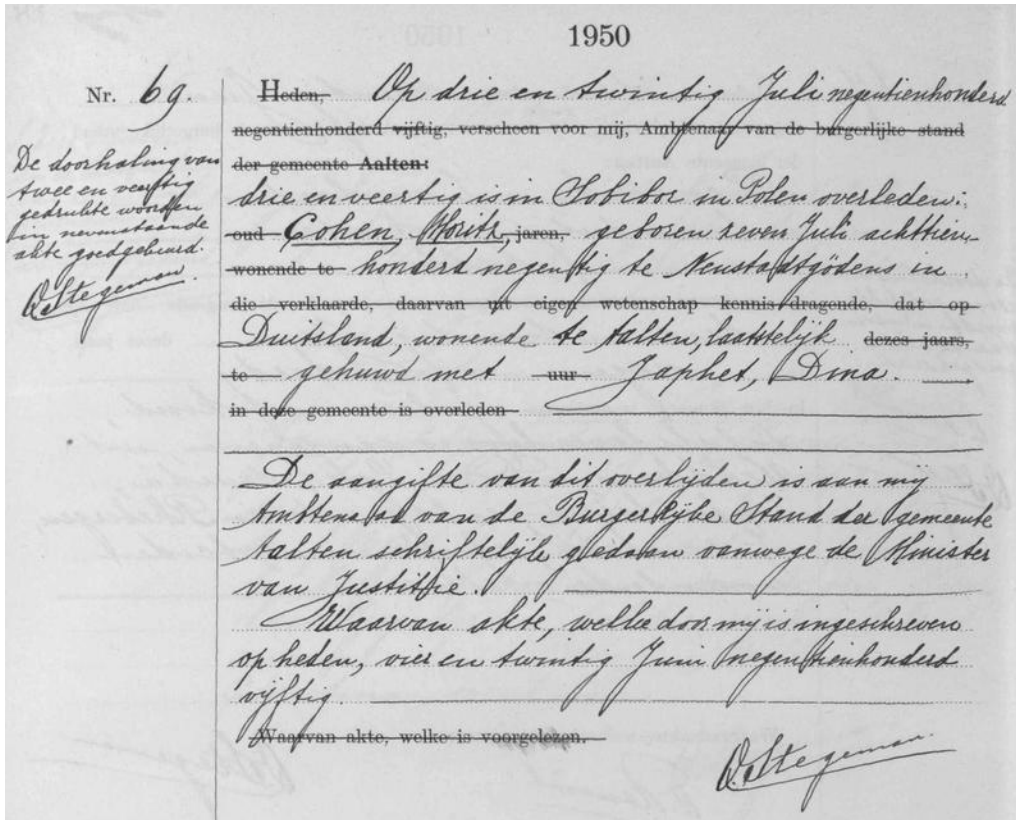 1950
Nr. 69.
De doorhaling van
twee en veertig
gedrukte woorden
in nevenstaande
akte goedgekeurd.
D. Stegeman.
Heden, Op drie en twintig Juli negentienhonderd
negentienhonderd vijftig, verscheen voor mij, Ambtenaar van de burgerlijke stand
der gemeente Aalten:
drie en veertig is in Sobibor in Polen overleden:
oud Cohen, Moritz, jaren, geboren zeven Juli achttien-
wonende te honderd negentig te Neustadtgödens in
die verklaarde, daarvan uit eigen wetenschap kennis dragende, dat op
Duitsland, wonende te Aalten, laatstelijk dezes jaars,
te gehuwd met uur Japhet, Dina.
in deze gemeente is overleden
De aangifte van dit overlijden is aan mij
Ambtenaar van de Burgerlijke Stand der gemeente
Aalten schriftelijk gedaan vanwege de Minister
van Justitie.
Waarvan akte, welke door mij is ingeschreven
op heden, vier en twintig Juni negentienhonderd
vijftig.
Waarvan akte, welke is voorgelezen.
D. Stegeman.